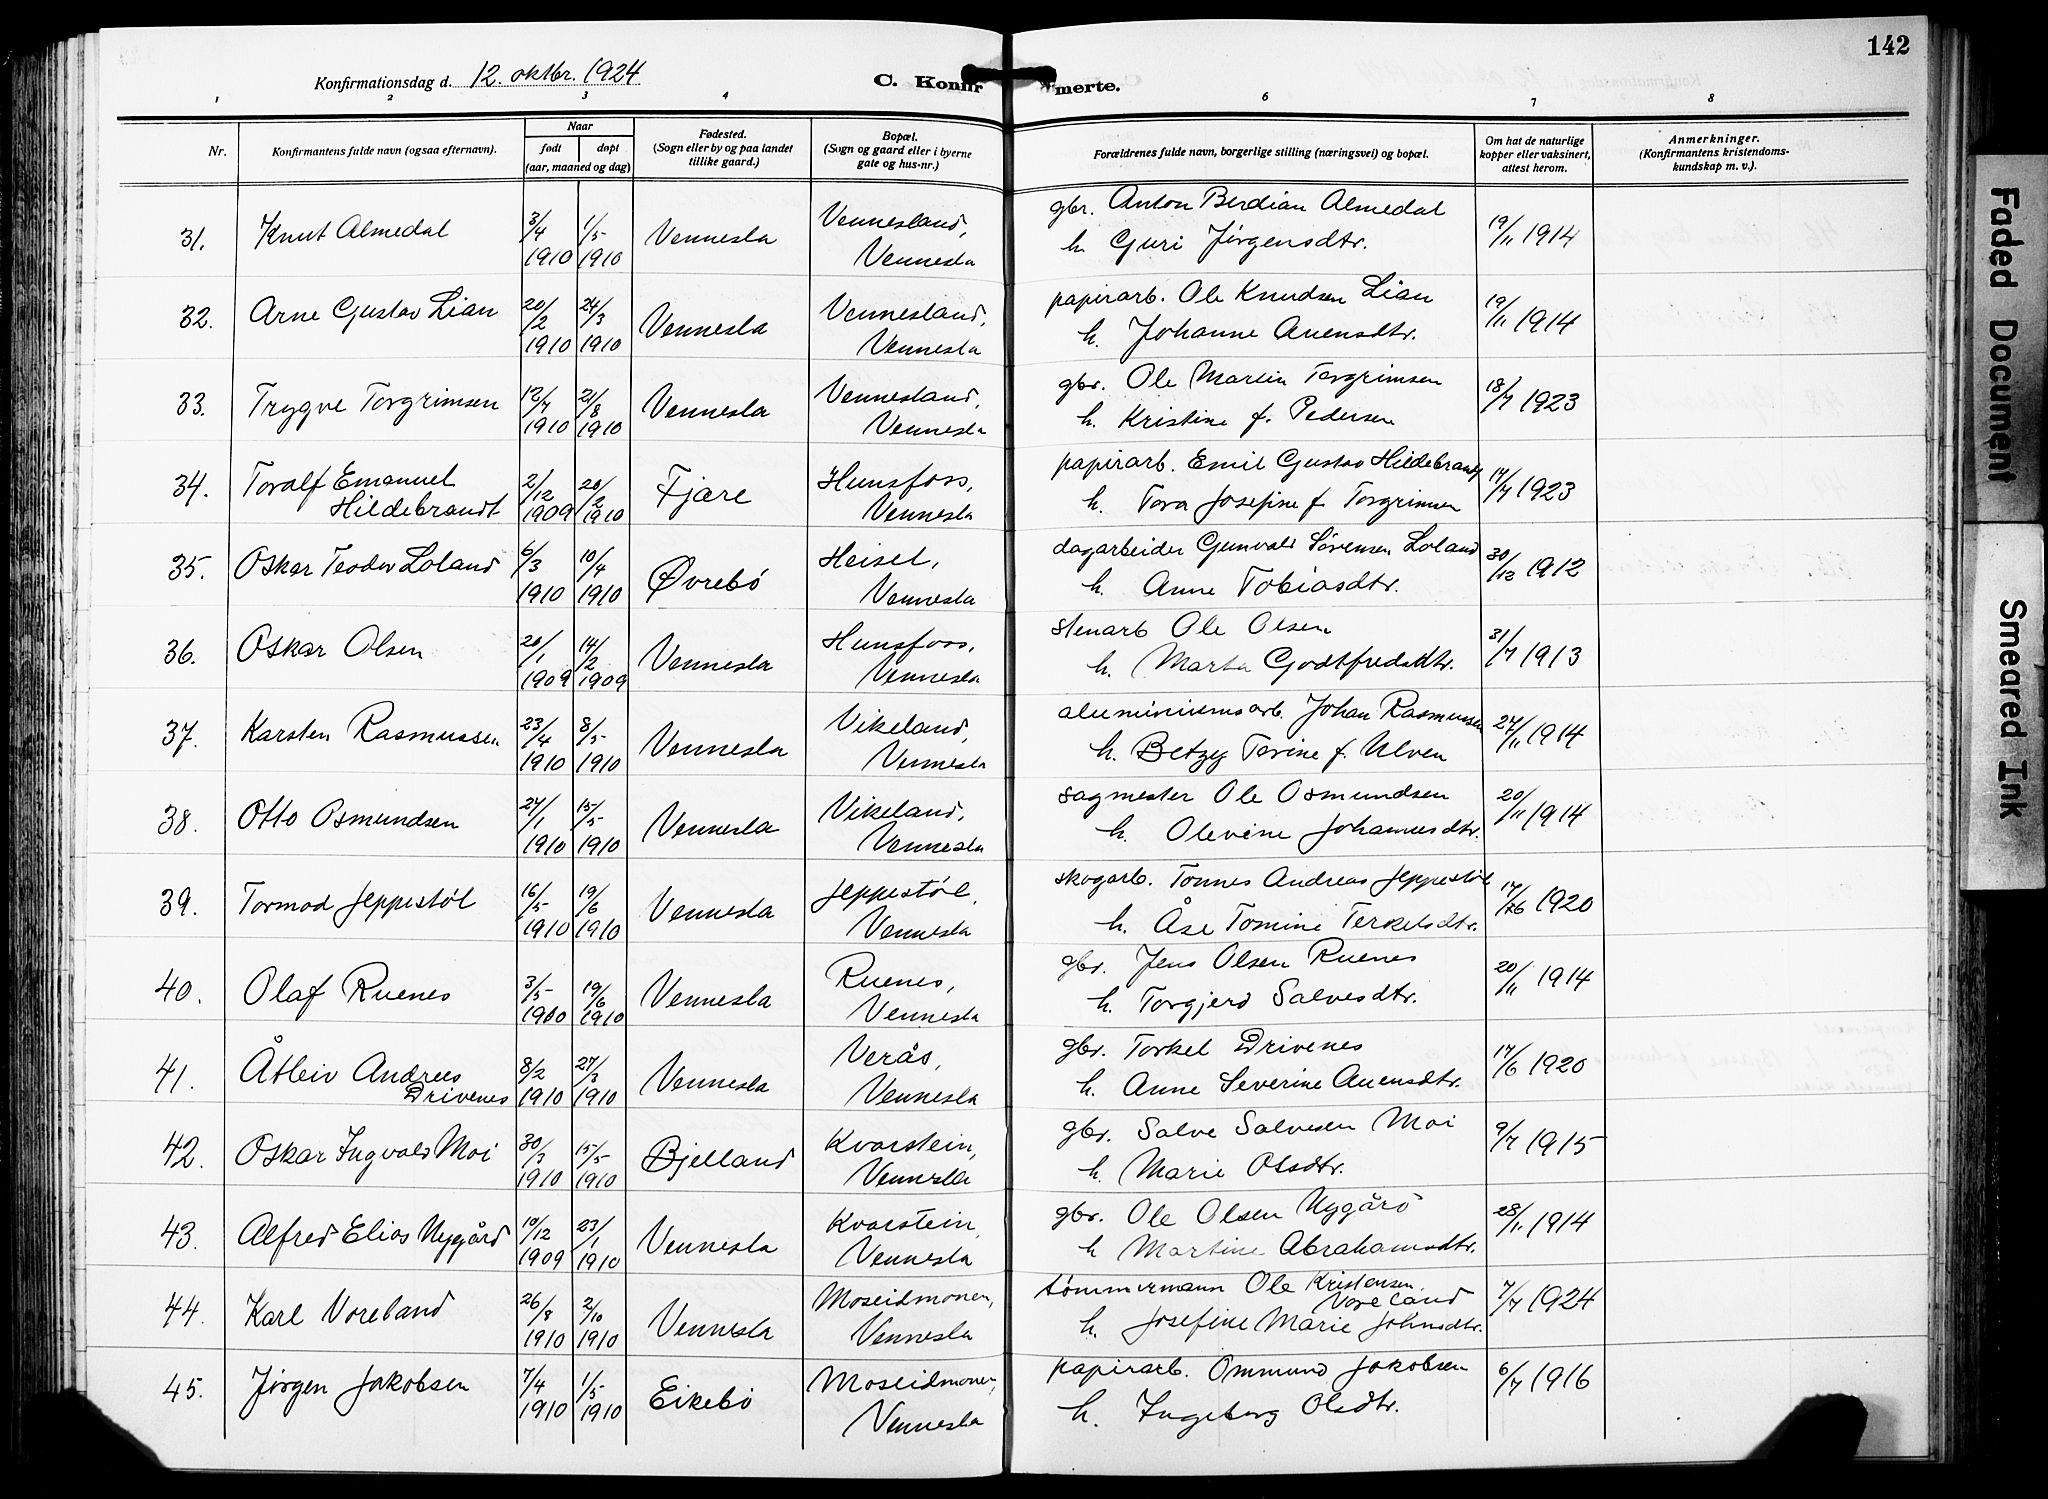 142
Konfirmationsdag d. 12. oktbr. 1924
C. Konfirmerte.
1 2 3 4 5 6 7 8
Nr.
Konfirmantens fulde navn (ogsaa efternavn).
Naar
født døpt
(aar, maaned og dag)
Fødested.
(Sogn eller by og paa landet
tillike gaard.)
Bopæl.
(Sogn og gaard eller i byerne
gate og hus-nr.)
Forældrenes fulde navn, borgerlige stilling (næringsvei) og bopæl.
Om hat de naturlige
kopper eller vaksinert,
attest herom.
Anmerkninger.
(Konfirmantens kristendoms-
kundskap m. v.).
31. Knut Almedal 3/4 1910 1/5 1910 Vennesla Vennesland, Vennesla
gbr. Anton Berdian Almedal
h. Guri Jørgensdtr. 19/11 1914
32. Arne Gustav Lian 20/2 1910 24/3 1910 Vennesla Vennesland, Vennesla
papirarb. Ole Knudsen Lian
h. Johanne Auensdtr. 19/11 1914
33. Trygve Torgrimsen 12/7 1910 21/8 1910 Vennesla Vennesland, Vennesla
gbr. Ole Martin Torgrimsen
h. Kristine f. Pedersen 18/7 1923
34. Toralf Emanuel Hildebrandt 2/12 1909 20/2 1910 Fjære Hunsfoss, Vennesla
papirarb. Emil Gustav Hildebrandt
h. Tora Josefine f. Torgrimsen 17/7 1923
35. Oskar Teodor Loland 6/3 1910 10/4 1910 Øvrebø Heisel, Vennesla
dagarbeider Gunvald Sørensen Loland
h. Anne Tobiasdtr. 30/12 1912
36. Oskar Olsen 20/1 1909 14/2 1909 Vennesla Hunsfoss, Vennesla
stenarb Ole Olsen
h. Marta Godtfredsdtr. 31/7 1913
37. Karsten Rasmussen 23/4 1910 8/5 1910 Vennesla Vikeland, Vennesla
aluminiumsarb. Johan Rasmussen
h. Betzy Terine f. Ulven 27/11 1914
38. Otto Osmundsen 27/1 1910 15/5 1910 Vennesla Vikeland, Vennesla
sagmester Ole Osmundsen
h. Olevine Johannesdtr. 20/11 1914
39. Tormod Jeppestøl 16/5 1910 19/6 1910 Vennesla Jeppestøl, Vennesla
skogarb. Tønnes Andreas Jeppestøl
h. Åse Tomine Terkelsdtr. 17/6 1920
40. Olaf Ruenes 3/5 1910 19/6 1910 Vennesla Ruenes, Vennesla
gbr. Jens Olsen Ruenes
h. Torgjerd Salvesdtr. 20/11 1914
41. Åtleiv Andreas Drivenes 8/2 1910 27/3 1910 Vennesla Verås, Vennesla
gbr. Torkel Drivenes
h. Anne Severine Auensdtr. 17/6 1920
42. Oskar Ingvald Moi 30/3 1910 15/5 1910 Bjelland Kvarstein, Vennesla
gbr. Salve Salvesen Moi
h. Marie Olsdtr. 9/7 1915
43. Alfred Elias Nygård 10/12 1909 23/1 1910 Vennesla Kvarstein, Vennesla
gbr. Ole Olsen Nygård
h Martine Abrahamsdtr. 28/11 1914
44. Karl Voreland 26/8 1910 2/10 1910 Vennesla Moseidmonen, Vennesla
tømmermann Ole Kristensen Voreland
h. Josefine Marie Johnsdtr. 7/7 1924
45. Jørgen Jakobsen 7/4 1910 1/5 1910 Eikebø Moseidmonen, Vennesla
papirarb. Ommund Jakobsen
h. Ingeborg Olsdtr. 6/7 1916
Faded Document
Smeared Ink